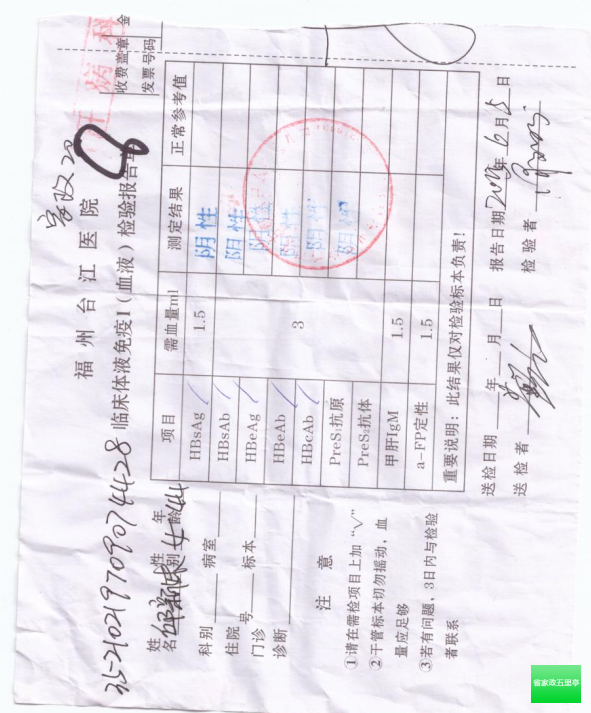 金
收费盖章
发票号码
福州台江医院
临床体液免疫I(血液)检验报告单
姓名
性别 女
年龄 44
科别
病室
住院号
标本
门诊
诊断
注意
①请在需检项目上加“√”
②干管标本切勿摇动，血
量应足够
③若有问题，3日内与检验
者联系
项目 需血量ml 测定结果 正常参考值
HBsAg √ 1.5 阴性
HBsAb √ 3 阴性
HBeAg √ 阴性
HBeAb √ 阴性
HBcAb √ 阴性
PreS₁抗原 阴性
PreS₂抗体
甲肝IgM 1.5
a-FP定性 1.5
重要说明：此结果仅对检验标本负责！
送检日期 年 月 日 报告日期 年6月15日
送检者 检验者
省家政五里亭